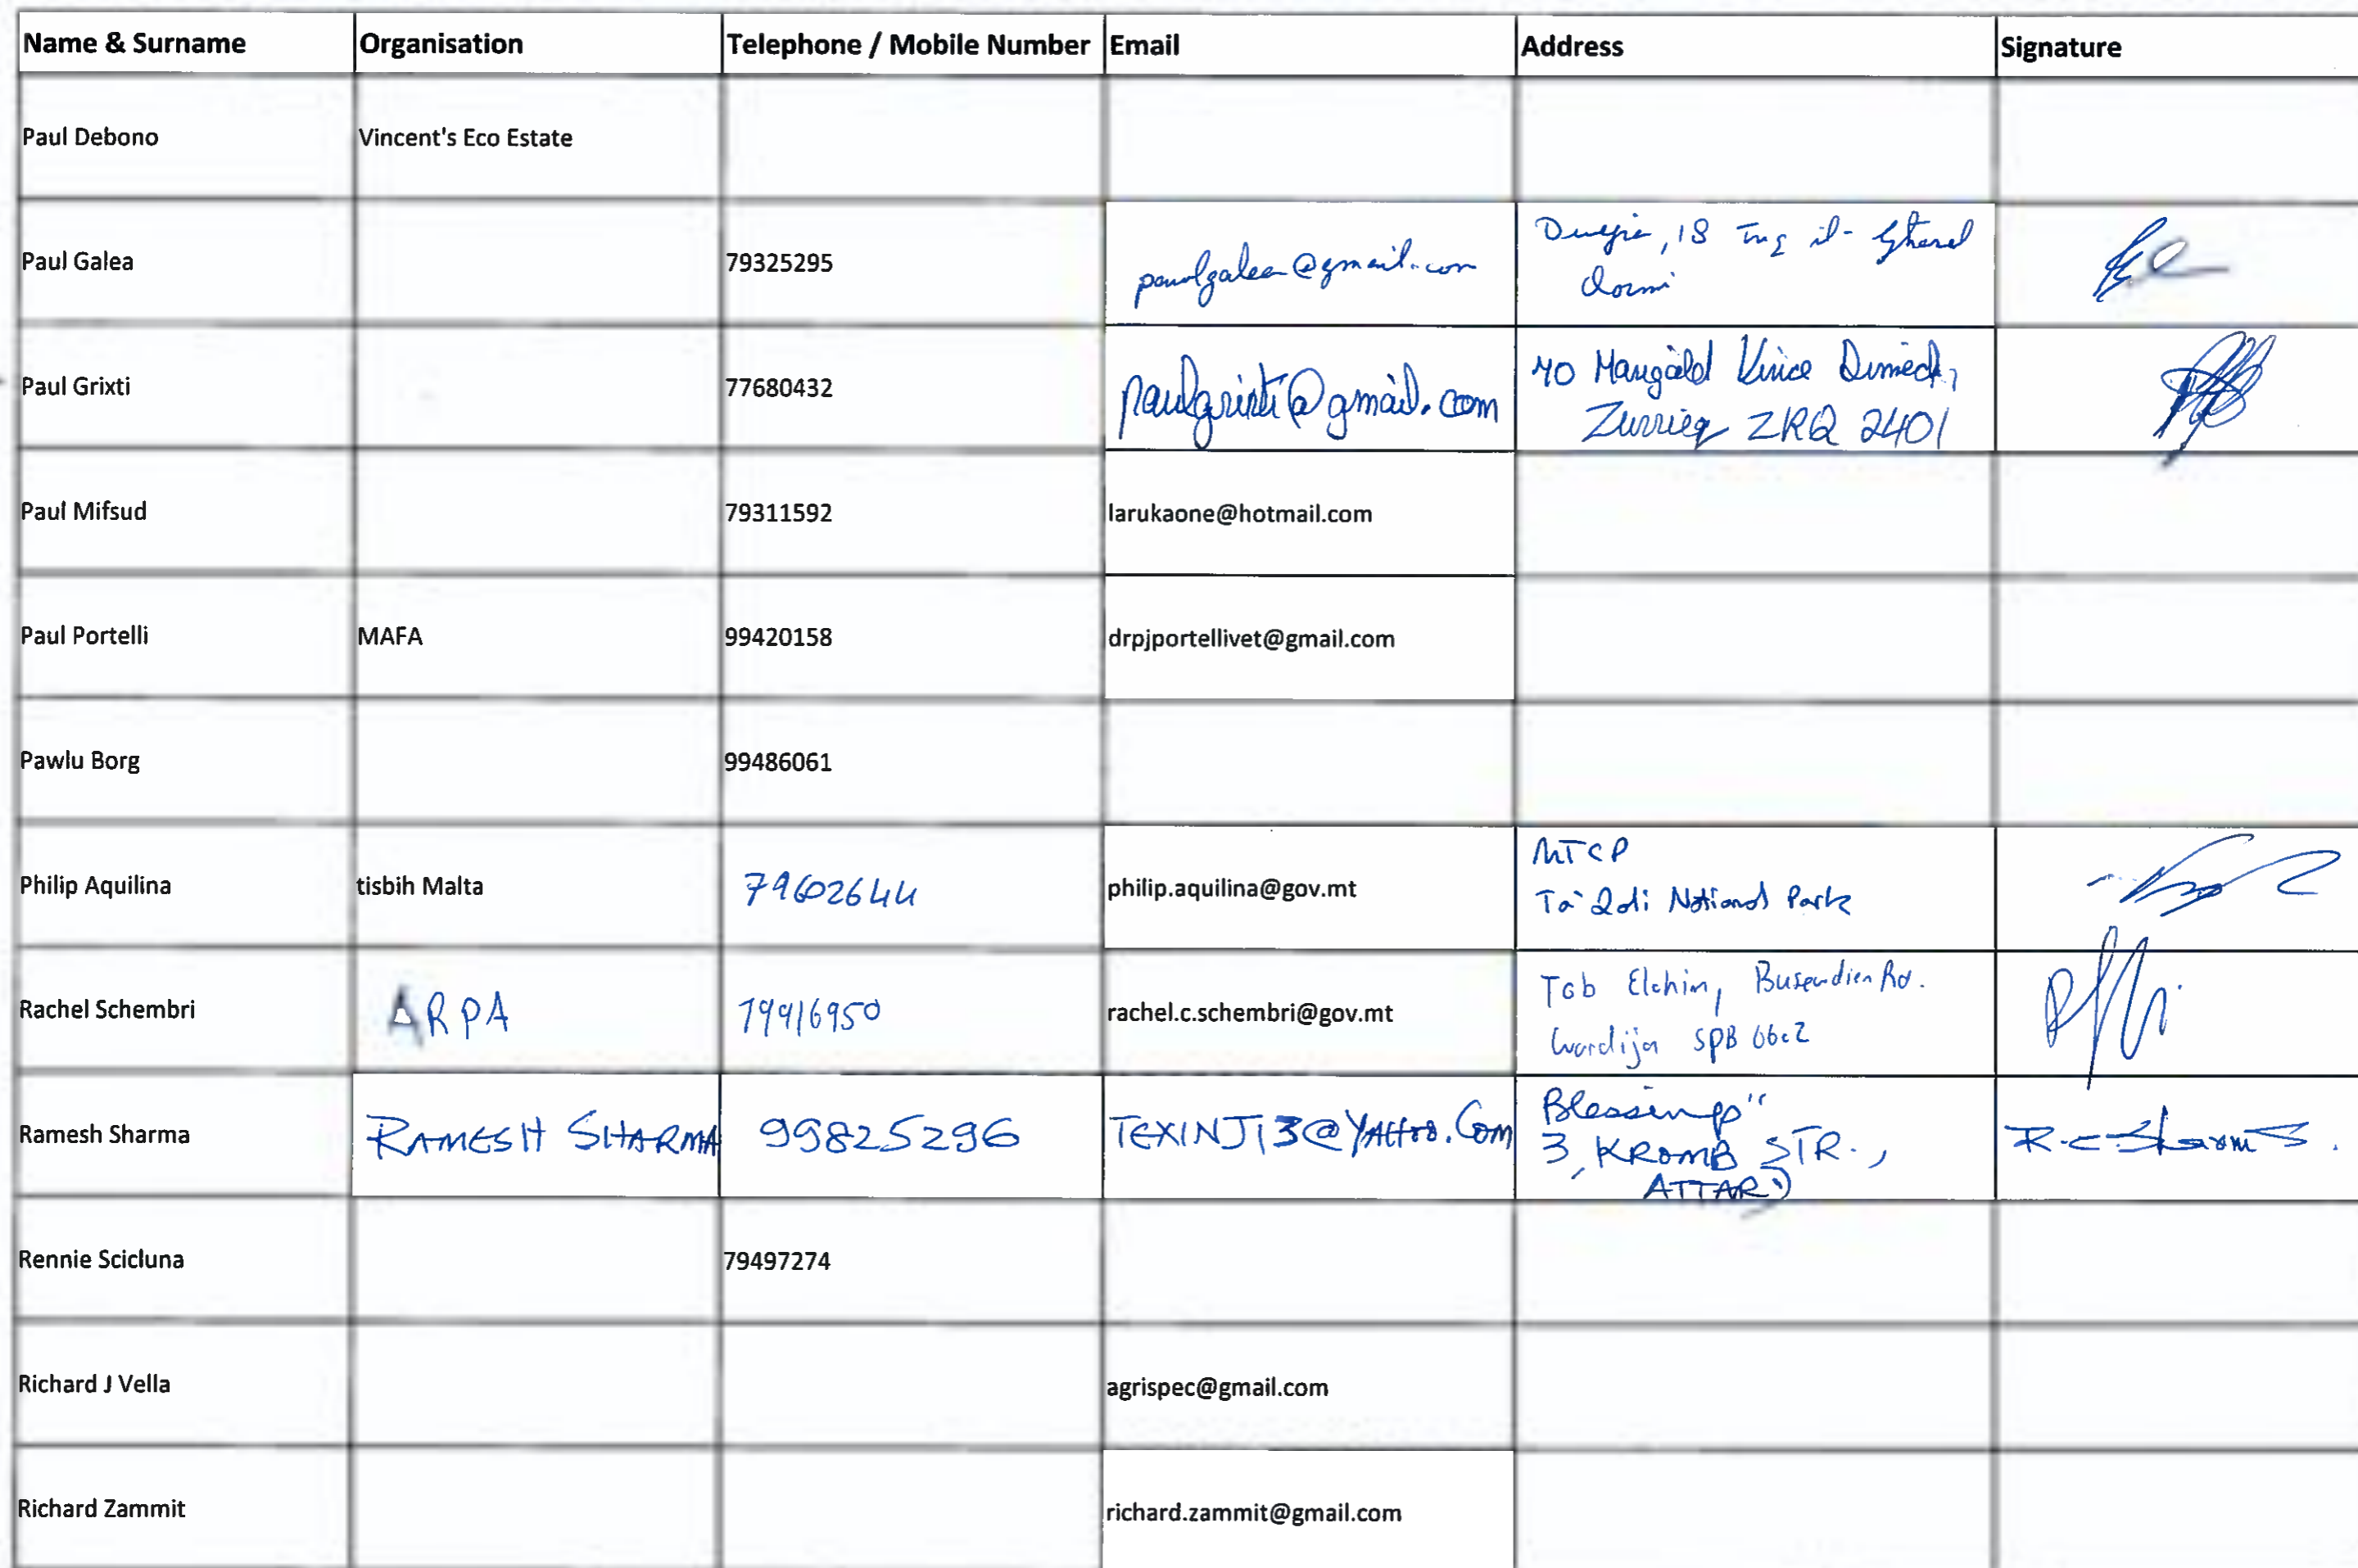 Name & Surname Organisation Telephone / Mobile Number Email Address Signature
Paul Debono Vincent's Eco Estate
Paul Galea 79325295 paulgalea@gmail.com 18 Triq il-
Paul Grixti 77680432 paulgrixti@gmail.com 40
Zurrieq ZRQ 2401
Paul Mifsud 79311592 larukaone@hotmail.com
Paul Portelli MAFA 99420158 drpjportellivet@gmail.com
Pawlu Borg 99486061
MTCP
Philip Aquilina tisbih Malta 79602644 philip.aquilina@gov.mt
Ta' Qali National Park
Rachel Schembri ARPA 79916950 rachel.c.schembri@gov.mt
Wardija SPB
Blessings"
Ramesh Sharma RAMESH SHARMA 99825296 TEXINJI3@YAHOO.Com
3, KROMB STR.,
ATTARD
R.C Sharma.
Rennie Scicluna 79497274
Richard J Vella agrispec@gmail.com
Richard Zammit richard.zammit@gmail.com